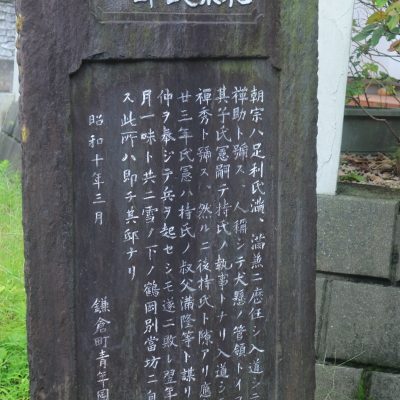 朝宗ハ足利氏満、満兼ニ歴任シ入道シテ
禅助ト號ス、人稱シテ犬懸ノ管領トイフ
其子氏憲嗣テ持氏ノ執事トナリ入道シ
禅秀ト號ス、然ルニ後持氏ト隙アリ應
廿三年氏憲ハ持氏ノ叔父満隆等ト謀リ
仲ヲ奉ジテ兵ヲ起セシモ遂ニ敗レ翌年
月一味ト共ニ雪ノ下ノ鶴岡別當坊ニ自
ス此所ハ即チ其邸ナリ
昭和十年三月
鎌倉町青年団